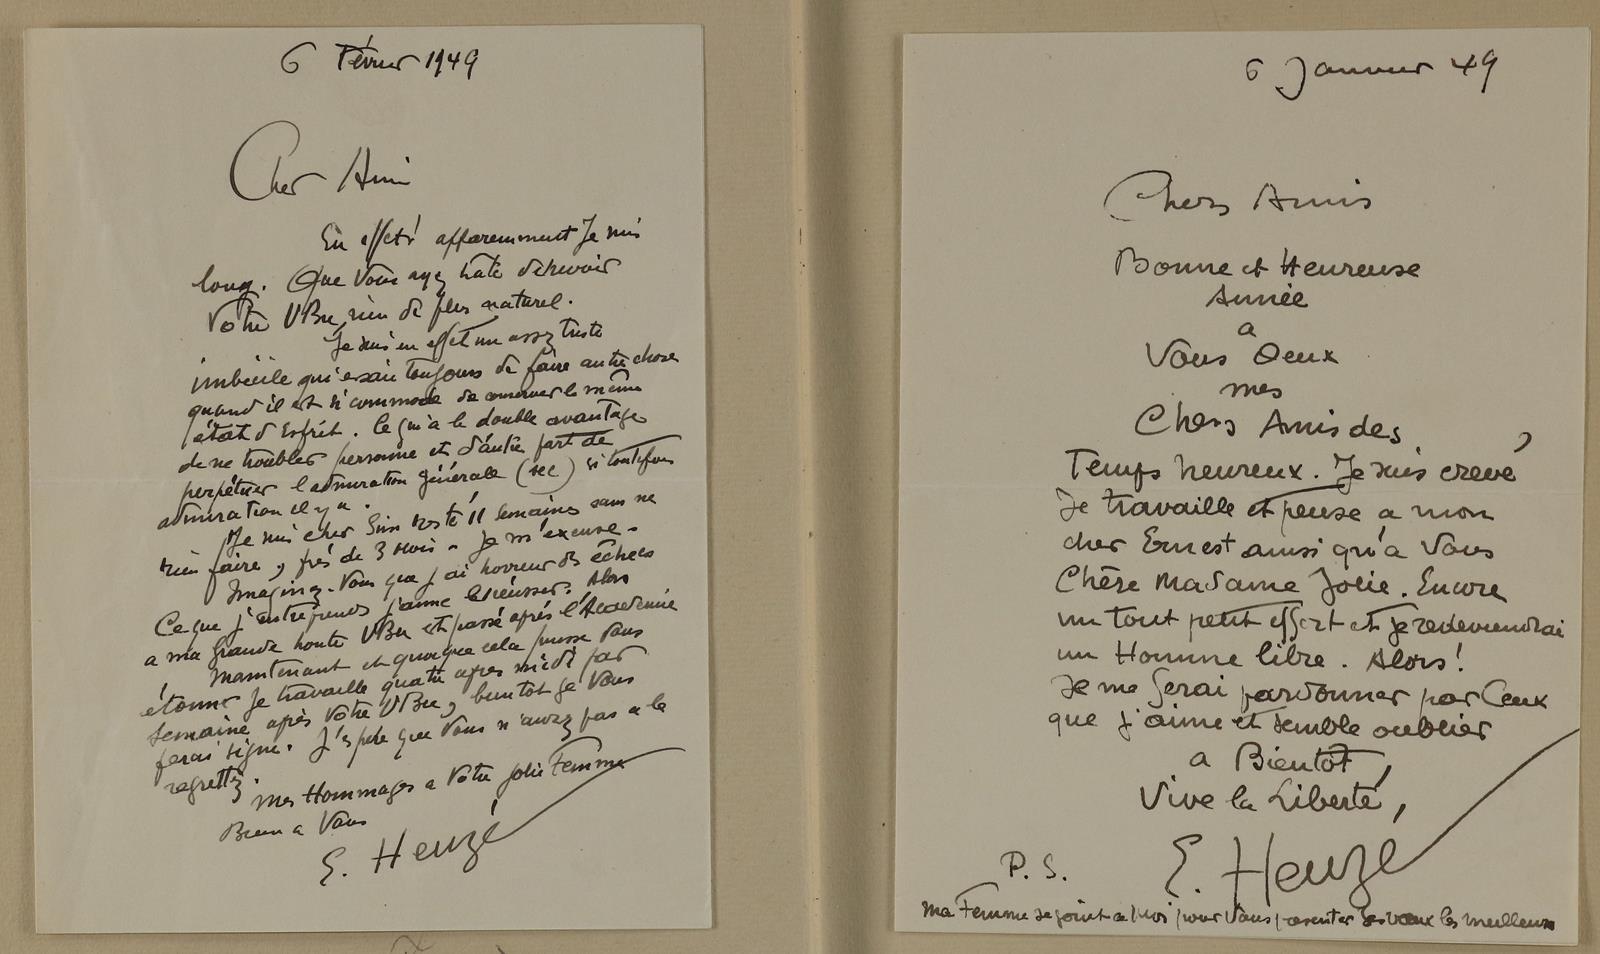 6 Février 1949
Cher Ami
En effet! apparemment Je suis
long. Que Vous ayez hâte de revoir
Votre UBu, rien de plus naturel.
Je suis en effet un assez triste
imbécile qui essaie toujours de faire autre chose
quand il est si commode de conserver le même
état d'Esprit. Ce qui a le double avantage
de ne troubler personne et d'autre part de
perpétuer l'admiration générale (sec) si toutefois
admiration il y a.
Je suis cher resté 11 Semaines sans ne
rien faire, près de 3 Mois. Je m'excuse.
Imaginez-Vous que j'ai horreur des échecs
Ce que j'entreprends j'aime le réussir. Alors
a ma grande honte UBu est passé après l'Academie
Maintenant et quoique cela puisse Vous
étonner Je travaille quatre apres midi par
Semaine après Votre UBu, bientot Je Vous
ferai signe. J'espère que Vous n'aurez pas a le
regretter.
Mes Hommages a Votre jolie Femme
Bien a Vous
E. Heuzé
6 Janvier 49
Chers Amis
Bonne et Heureuse
Année
a
Vous Deux
mes
Chers Amis des
Temps heureux. Je suis crevé,
Je travaille et pense a mon
cher Ernest ainsi qu'a Vous
Chère Madame Jolie. Encore
un tout petit effort et je redeviendrai
un Homme libre. Alors!
Je me ferai pardonner par Ceux
que j'aime et semble oublier
a Bientot,
Vive la Liberté,
E. Heuzé
P.S.
Ma Femme se joint a Moi pour Vous presenter les vœux les meilleurs